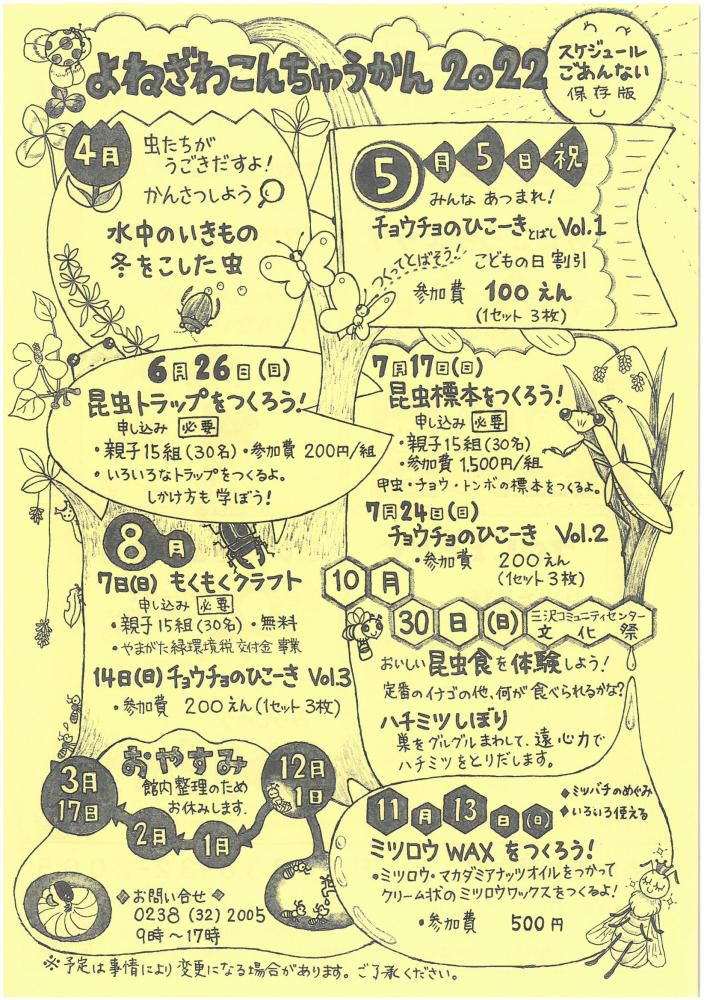 よねざわこんちゅうかん 2022
スケジュール
ごあんない
保存版
4月
虫たちが
うごきだすよ!
かんさつしよう
水中のいきもの
冬をこした虫
5月5日祝
みんな あつまれ!
チョウチョのひこーきとばし Vol.1
つくってとばそう!
こどもの日 割引
参加費 100えん
(1セット 3枚)
6月26日(日)
昆虫トラップをつくろう!
申し込み 必要
・親子15組(30名)・参加費 200円/組
・いろいろなトラップをつくるよ。
しかけ方も 学ぼう!
7月17日(日)
昆虫標本をつくろう!
申し込み 必要
・親子15組(30名)
・参加費 1,500円/組
甲虫・チョウ・トンボの標本をつくるよ。
7月24日(日)
チョウチョのひこーき Vol.2
・参加費 200えん
(1セット 3枚)
8月
7日(日) もくもくクラフト
申し込み 必要
・親子15組(30名)・無料
・やまがた緑環境税交付金 事業
14日(日) チョウチョのひこーき Vol.3
・参加費 200えん(1セット 3枚)
10月
30日(日) 三沢コミュニティセンター
文化祭
おいしい昆虫食を体験しよう!
定番のイナゴの他、何が食べられるかな?
ハチミツしぼり
巣をグルグルまわして、遠心力で
ハチミツをとりだします。
おやすみ
館内整理のため
お休みします.
12月
1日
1月
2月
3月
17日
11月13日(日)
◆ミツバチのめぐみ
◆いろいろ使える
ミツロウWAXをつくろう!
・ミツロウ・マカダミアナッツオイルをつかって
クリーム状のミツロウワックスをつくるよ!
・参加費 500円
◆お問い合せ◆
0238 (32) 2005
9時～17時
※予定は事情により変更になる場合があります。ご了承ください。